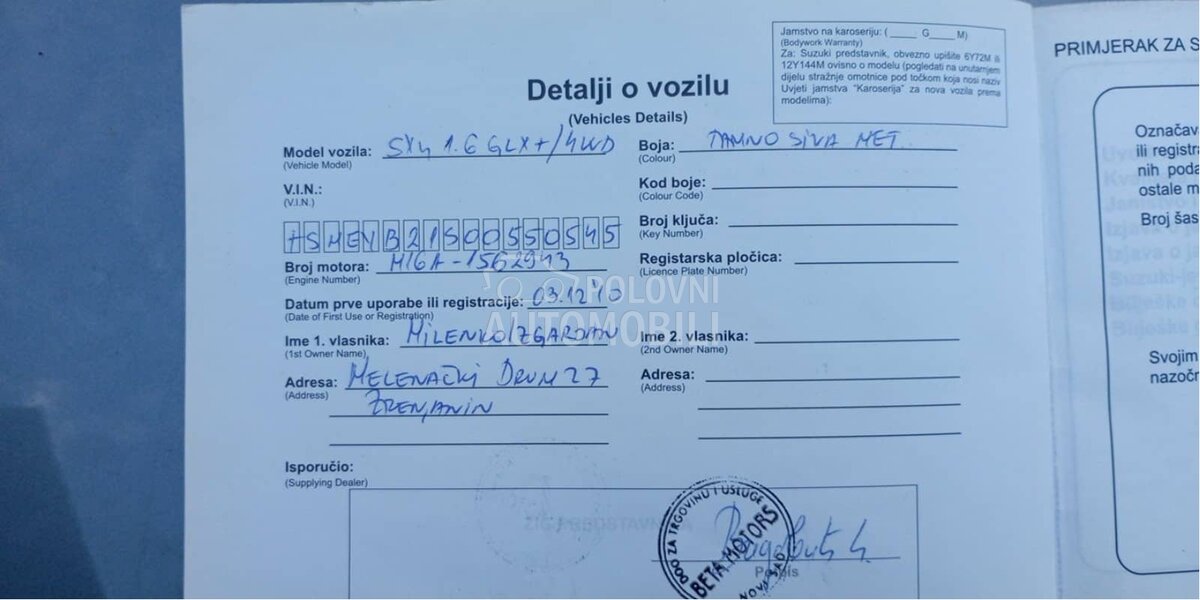 Jamstvo na karoseriju: ( _____ G____ M)
(Bodywork Warranty)
Za: Suzuki predstavnik, obvezno upišite 6Y72M ili
12Y144M ovisno o modelu (pogledati na unutarnjem
dijelu stražnje omotnice pod točkom koja nosi naziv
Uvjeti jamstva "Karoserija" za nova vozila prema
modelima):
PRIMJERAK ZA S
Detalji o vozilu
(Vehicles Details)
Model vozila: SX4 1.6 GLX+/4WD
(Vehicle Model)
Boja: TAMNO SIVA MET.
(Colour)
V.I.N.:
(V.I.N.)
Kod boje:
(Colour Code)
TSMEYB21S00550545
Broj ključa:
(Key Number)
Broj motora: M16A-1562943
(Engine Number)
Registarska pločica:
(Licence Plate Number)
Datum prve uporabe ili registracije: 03.12.10
(Date of First Use or Registration)
POLOVNI
AUTOMOBILI
Ime 1. vlasnika: MILENKO IZGARJAN
(1st Owner Name)
Ime 2. vlasnika:
(2nd Owner Name)
Adresa: MELENAČKI DRUM 27
(Address)
ZRENJANIN
Adresa:
(Address)
Isporučio:
(Supplying Dealer)
DOO ZA TRGOVINU I USLUGE
BETA MOTORS
NOVI SAD
Potpis
Označava
ili registr
nih poda
ostale m
Broj šas
Svojim
nazočr